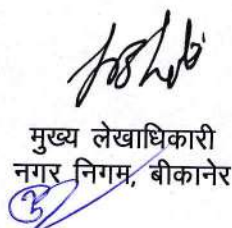 मुख्य लेखाधिकारी
नगर निगम, बीकानेर
3